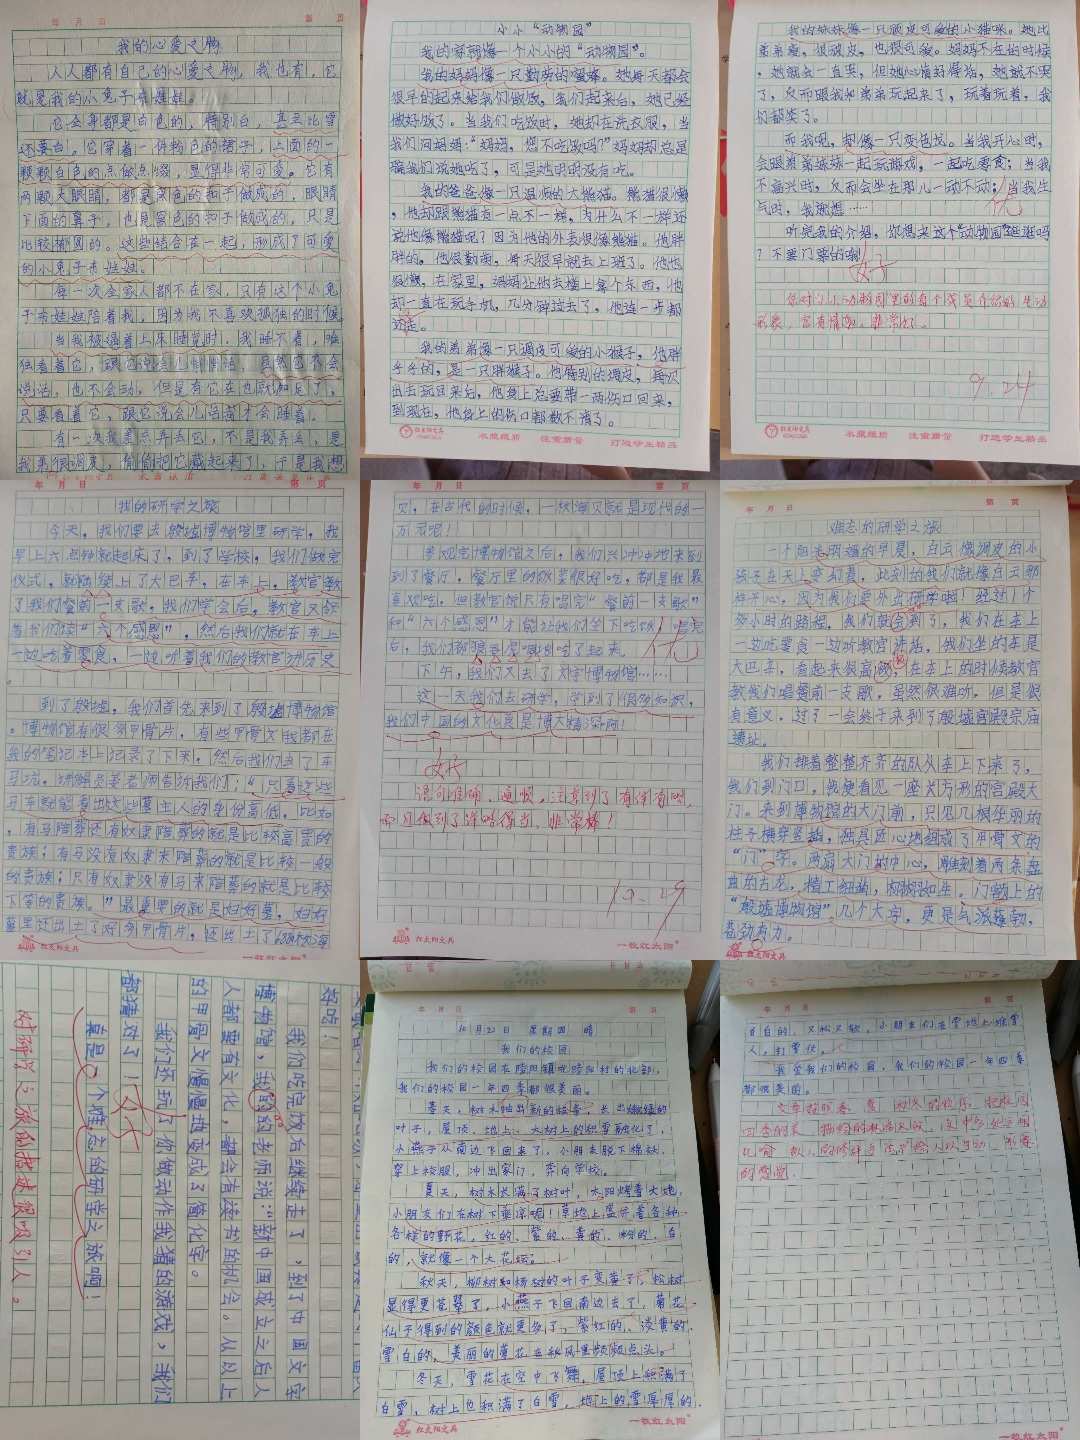 我的心爱之物
人人都有自己的心爱之物,我也有,它
就是我的小兔子布娃娃。
它全身都是白色的,特别白,甚至比雪
还要白。它穿着一件粉色的裙子,上面的一
颗颗白色的点做点缀,显得非常可爱。它有
两颗大眼睛,都是黑色的扣子做成的,眼睛
下面的鼻子,也是黑色的扣子做成的,只是
比较椭圆的。这些结合在一起,形成了可爱
的小兔子布娃娃。
每一次全家人都不在家,只有这个小兔
子布娃娃陪着我,因为我不喜欢孤独的时候
当我被逼着上床睡觉时,我睡不着,唯
独看着它,跟它说会儿悄悄话,虽然它不会
说话,也不会动,但是有它在也就知足了,
只要看着它,跟它说会儿话才会睡着。
有一次我差点弄丢它,不是我弄丢,是
我弟很调皮,偷偷把它藏起来了,于是我想
小小“动物园”
我的家就像一个小小的“动物园”。
我的妈妈像一只勤劳的蜜蜂。她每天都会
很早的起来给我们做饭,我们起来后,她已经
做好饭了。当我们吃饭时,她却在洗衣服,当
我们问妈妈:“妈妈,您不吃饭吗?”妈妈却总是
骗我们说她吃了,可是她明明没有吃。
我的爸爸像一只温顺的大熊猫。熊猫很懒
,他却跟熊猫有一点不一样,为什么不一样还
说他像熊猫呢?因为他的外表很像熊猫。他胖
胖的,他很勤劳,每天很早就去上班了。他也
很懒,在家里,妈妈让他去楼上拿个东西,他
却一直在玩手机,几分钟过去了,他连一步都
没走。
我的弟弟像一只调皮可爱的小猴子,他胖
乎乎的,是一只胖猴子。他特别的调皮,每次
出去玩回来后,他身上总要带一两伤口回来,
到现在,他身上的伤口都数不清了。
我的妹妹像一只顽皮可爱的小猫咪。她比
弟弟乖,很顽皮,也很可爱。妈妈不在的时候
,她就会一直哭,但她心情好得话,她就不哭
了,反而跟我和弟弟玩起来了,玩着玩着,我
们都笑了。
而我呢,却像一只变色龙。当我开心时,
会跟弟弟妹妹一起玩游戏,一起吃零食;当我
不高兴时,反而会坐在那儿一动不动;当我生
气时,我就想……
优
听完我的介绍,你想来这个“动物园”逛逛吗
?不要门票的哟!
好
你对门小动物园里的每个成员介绍的生动
形象,富有情趣,非常好。
9.24
我的研学之旅
今天,我们要去殷墟博物馆里研学,我
早上六点钟就起床了,到了学校,我们做完
仪式,就陆续上了大巴车,在车上,教官教
了我们餐前一支歌,我们学会后,教官又领
着我们读“六个感恩”,然后我们就在车上
一边吃着零食,一边听着我们的教官讲历史
。
到了殷墟,我们首先来到了殷墟博物馆
。博物馆有很多甲骨片,有些甲骨文我都在
我的笔记本上记录了下来,然后我们去了车
马坑,讲解员姜老师告诉我们:“只看这些
马车就能看出这些墓主人的身份高低,比如
,有马陪葬还有奴隶陪葬的就是比较高贵的
贵族;有马没有奴隶来陪葬的就是比较一般
的贵族;只有奴隶没有马来陪葬的就是比较
下等的贵族。”最重要的就是妇好墓,妇好
墓里还出土了好多甲骨片,还出土了6800枚海
贝,在古代的时候,一枚海贝就是现代的一
万元呢!
参观完博物馆之后,我们兴冲冲地来到
到了餐厅,餐厅里的饭菜很好吃,都是我最
喜欢吃,但教官说只有唱完“餐前一支歌”
和“六个感恩”才能让我们坐下吃饭,唱完
后,我们都狼吞虎咽的吃了起来。
优
下午,我们又去了文字博物馆……
这一天我们去研学,学到了很多知识,
我们中国的文化真是博大精深阿!
好
语句准确、通顺,注意到了有详有略,
而且做到了详略得当,非常棒!
10.29
难忘的研学之旅
一个阳光明媚的早晨,白云像调皮的小
孩子在天上变幻着,此刻的我们就像白云那
样开心,因为我们要外出研学啦!经过1个
多小时的路程,我们就会到了,我们在车上
一边吃零食一边听教官讲话,我们坐的车是
大巴车,看起来很高级,在车上的时候教官
教我们唱餐前一支歌,虽然很难听,但是很
有意义,过了一会终于来到了殷墟宫殿宗庙
遗址。
我们排着整整齐齐的队从车上下来了,
我们到门口,我便看见一座长方形的宫殿大
门。来到博物馆的大门前,只见几根华丽的
柱子横穿竖插,独具匠心地组成了甲骨文的
“门”字。两扇大门的中心,雕刻着两条盘
曲的古龙,精工细琢,栩栩如生。门匾上的
“殷墟博物馆”几个大字,更是气派蓬勃,
苍劲有力。
好吃!
我们吃完饭后继续走了,到了中国文字
博物馆,我的老师说:“新中国成立之后人
人都要有文化,都会有读书的机会。从以上
的甲骨文慢慢地变成了简化字。
我们还玩了你做动作我猜的游戏,我们
都猜对了!
好
真是一个难忘的研学之旅啊!
对研学之旅的描述很吸引人。
10月22日 星期四 晴
我们的校园
我们的校园的一年四季都很美丽。
春天,树木抽出新的枝条,长出嫩绿的
叶子,屋顶、地上、大树上的积雪融化了,
小燕子从南边飞回来了,小朋友脱下棉袄,
穿上校服,冲出家门,奔向学校。
夏天,树木长满了树叶,太阳烤着大地,
小朋友们在树下乘凉呢!草地上盖开着各种
各样的野花,红的、紫的、黄的、粉的、白
的,就像一个大花坛。
秋天,柳树和杨树的叶子变黄了,松树
显得更苍翠了,小燕子飞回南边去了,菊花
仙子得到的颜色就更多了,紫红的、淡黄的、
雪白的、美丽的菊花在秋风里频频点头。
冬天,雪花在空中飞舞,屋顶上积满了
白雪,树上也积满了白雪,地上的雪厚厚的,
白白的,又松又软,小朋友们在雪地上堆雪
人,打雪仗。
我爱我们的校园,我们的校园一年四季
都很美丽。